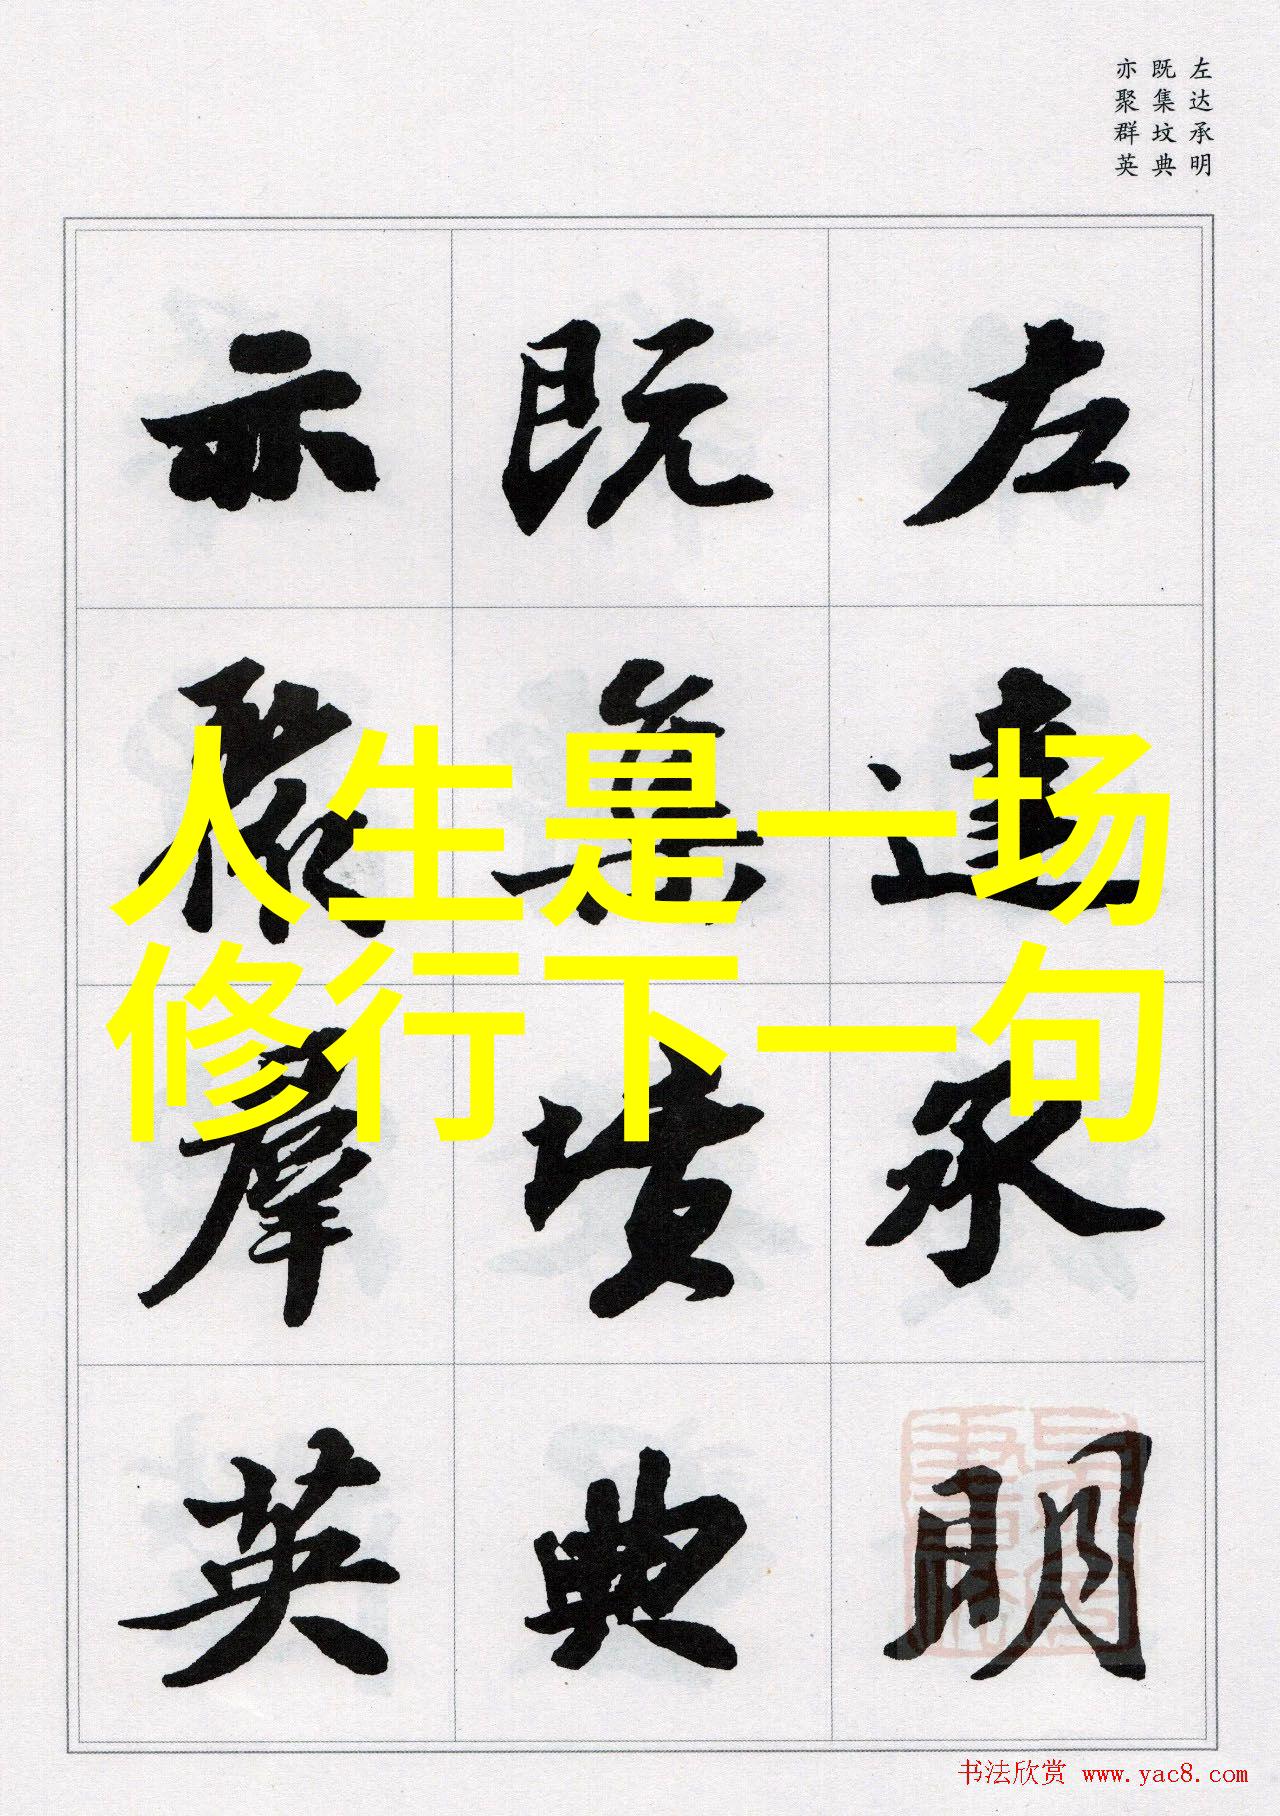 左达承明
既集坟典
亦聚群英
左達承明
既集墳典
亦聚羣英
人生是一场
修行下一句
书法欣赏 www.yac8.com